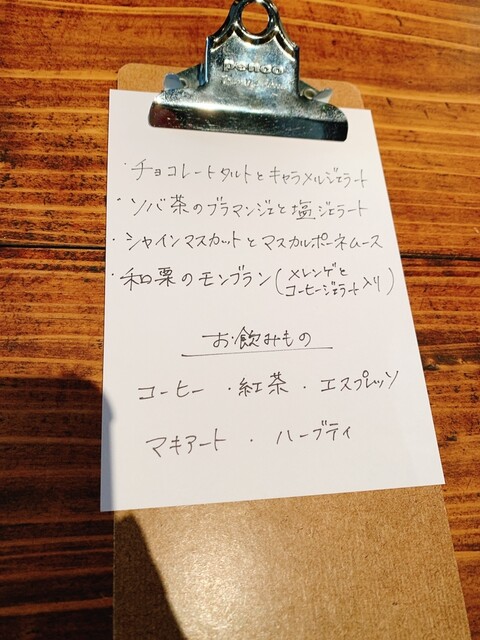 penco
・チョコレートタルトとキャラメルジェラート
・ソバ茶のブラマンジェと塩ジェラート
・シャインマスカットとマスカルポーネムース
・和栗のモンブラン(メレンゲと
コーヒージェラート入り)
お飲みもの
コーヒー ・紅茶 ・ エスプレッソ
マキアート ・ ハーブティ